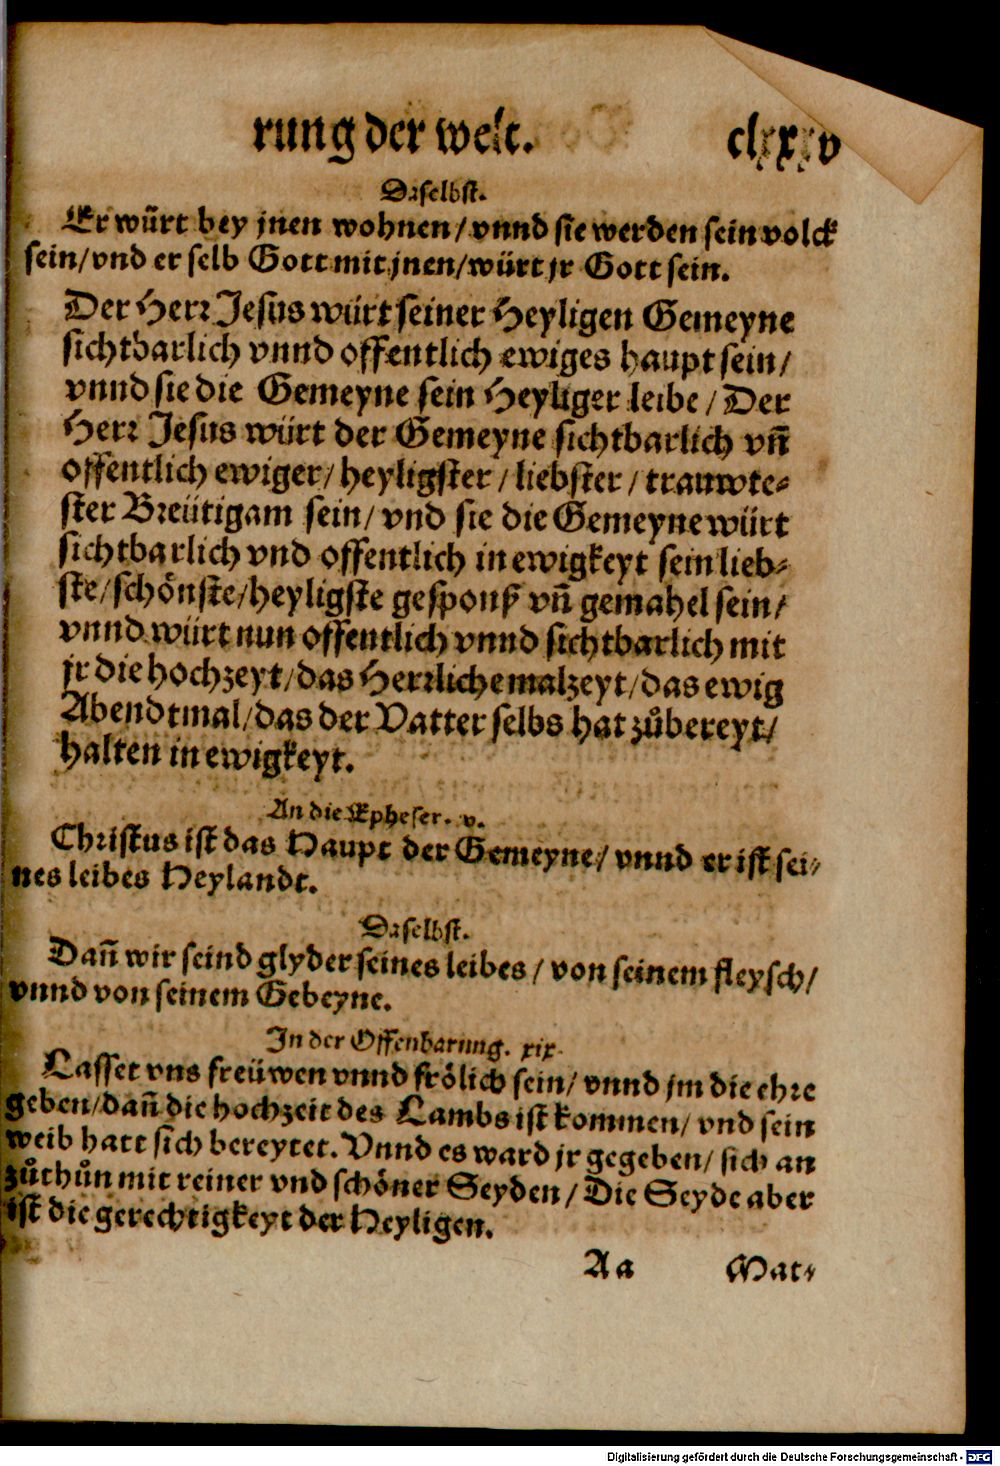 rung der welt. clxxxv
Daselbst.
Er würt bey jnen wohnen/ vnnd sie werden sein volck
sein/ vnd er selb Gott mit jnen/ würt jr Gott sein.
Der Herr Jesus würt seiner Heyligen Gemeyne
sichtbarlich vnnd offentlich ewiges haupt sein/
vnnd sie die Gemeyne sein Heyliger leibe/ Der
Herr Jesus würt der Gemeyne sichtbarlich vn̄
offentlich ewiger/ heyligster/ liebster/ trauwte-
ster Breütigam sein/ vnd sie die Gemeyne würt
sichtbarlich vnd offentlich in ewigkeyt sein lieb-
ste/ schönste/ heyligste gesponß vn̄ gemahel sein/
vnnd würt nun offentlich vnnd sichtbarlich mit
jr die hochzeyt/ das Herrliche malzeyt/ das ewig
Abendtmal/ das der Vatter selbs hat zůbereyt/
halten in ewigkeyt.
An die Epheser. v.
Christus ist das Haupt der Gemeyne/ vnnd er ist sei-
nes leibes Heylandt.
Daselbst.
Dan̄ wir seind glyder seines leibes/ von seinem fleysch/
vnnd von seinem Gebeyne.
In der Offenbarung. xix.
Lasset vns freüwen vnnd frölich sein/ vnnd jm die ehre
geben/ dan̄ die hochzeit des Lambs ist kommen/ vnd sein
weib hatt sich bereytet. Vnnd es ward jr gegeben/ sich an
zůthůn mit reiner vnd schöner Seyden/ Die Seyde aber
ist die gerechtigkeyt der Heyligen.
Aa Mat-
Digitalisierung gefördert durch die Deutsche Forschungsgemeinschaft - DFG